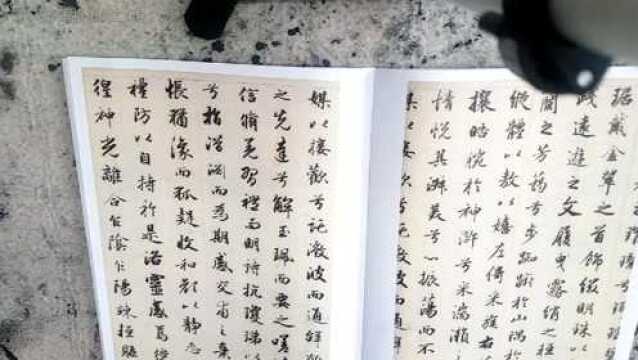 琚戴金翠之首飾綴明珠以
踐遠遊之文履曳霧綃之輕
蘭之芳藹兮步踟躕於山隅
縱體以敖以嬉左倚采旄右
攘皓捥於神滸兮采湍瀨
情悅其淑美兮心振蕩而不
媒以接歡兮託微波而通
媒以接歡兮託微波而通辭
之先達兮解玉珮而要之嗟
信脩羌習禮而明詩抗瓊珶以
兮指潛淵而為期感交甫之棄
悵猶豫而狐疑收和顏以靜志
禮防以自持於是洛靈感焉徙
徨神光離合乍陰乍陽竦輕軀